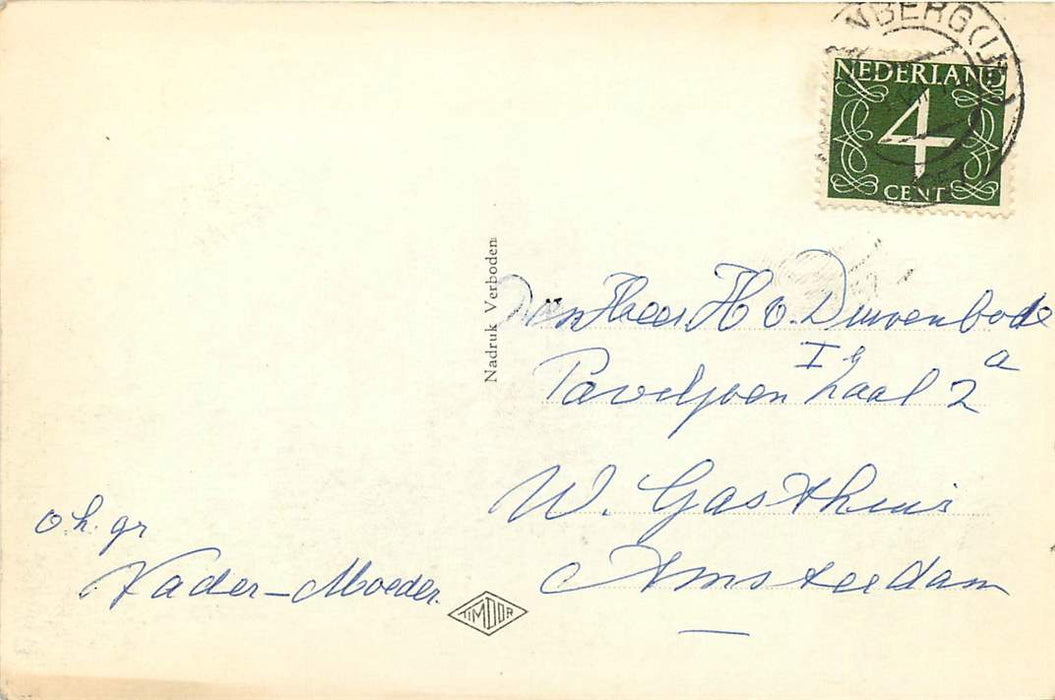 NBERG (L
NEDERLAND
4
CENT
Nadruk Verboden
Den Heer H v. Duivenbode
Paviljoen I g zaal 2 a
W. Gasthuis
Amsterdam
o.h. gr
Vader - Moeder.
TIMDOR